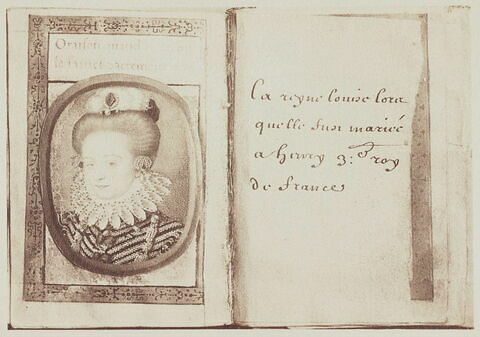 Oraison
le sainct sacrem
La reyne louise lora
quelle fun mariée
a henry 3.e roy
de france